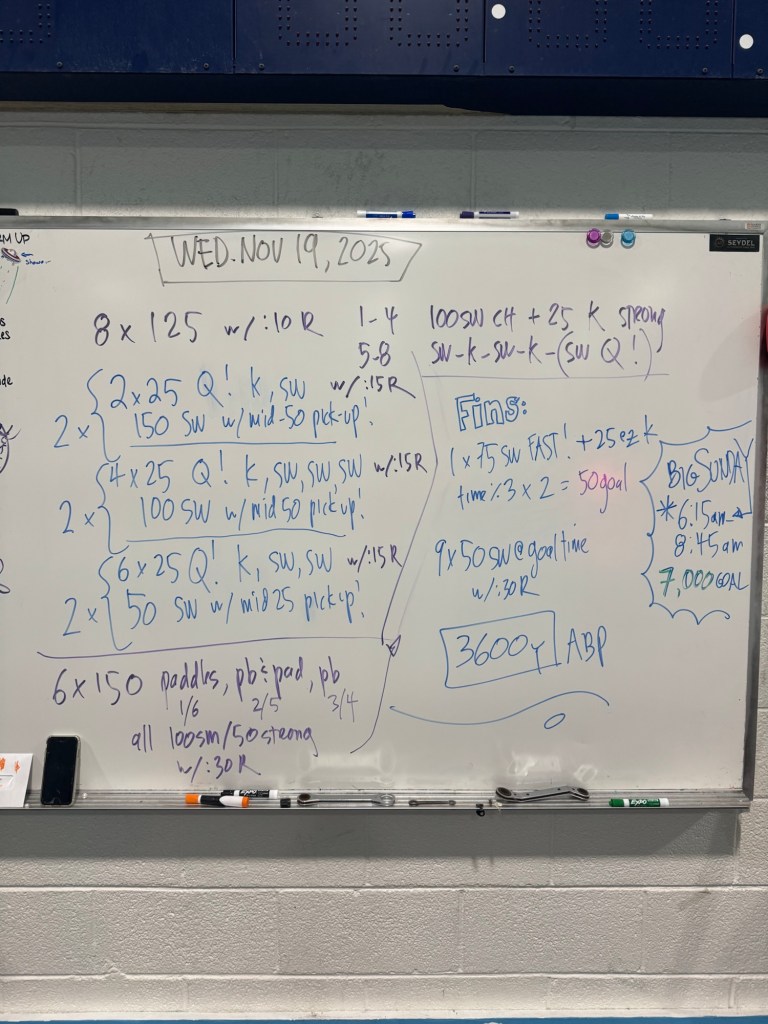 RM UP
Shower
WED. NOV 19, 2025
SEYDEL
8 x 125 w/:10 R
1-4 100 SW CH + 25 K strong
5-8 SW-K-SW-K-(SW Q!)
2 x { 2 x 25 Q! K, SW w/:15R
150 SW w/mid-50 pick-up!
2 x { 4 x 25 Q! K, SW, SW, SW w/:15R
100 SW w/mid 50 pick up!
2 x { 6 x 25 Q! K, SW, SW w/:15R
50 SW w/ mid 25 pick up!
6 x 150 paddles, pb & pad, pb
1/6 2/5 3/4
all 100sm/50 strong
w/:30 R
Fins:
1 x 75 SW FAST! + 25 ez K
time ÷ 3 x 2 = 50 goal
9 x 50 SW @ goal time
w/:30R
3600y ABP
BIG SUNDAY
* 6:15am -
8:45am
7,000 GOAL
EXPO
EXPO